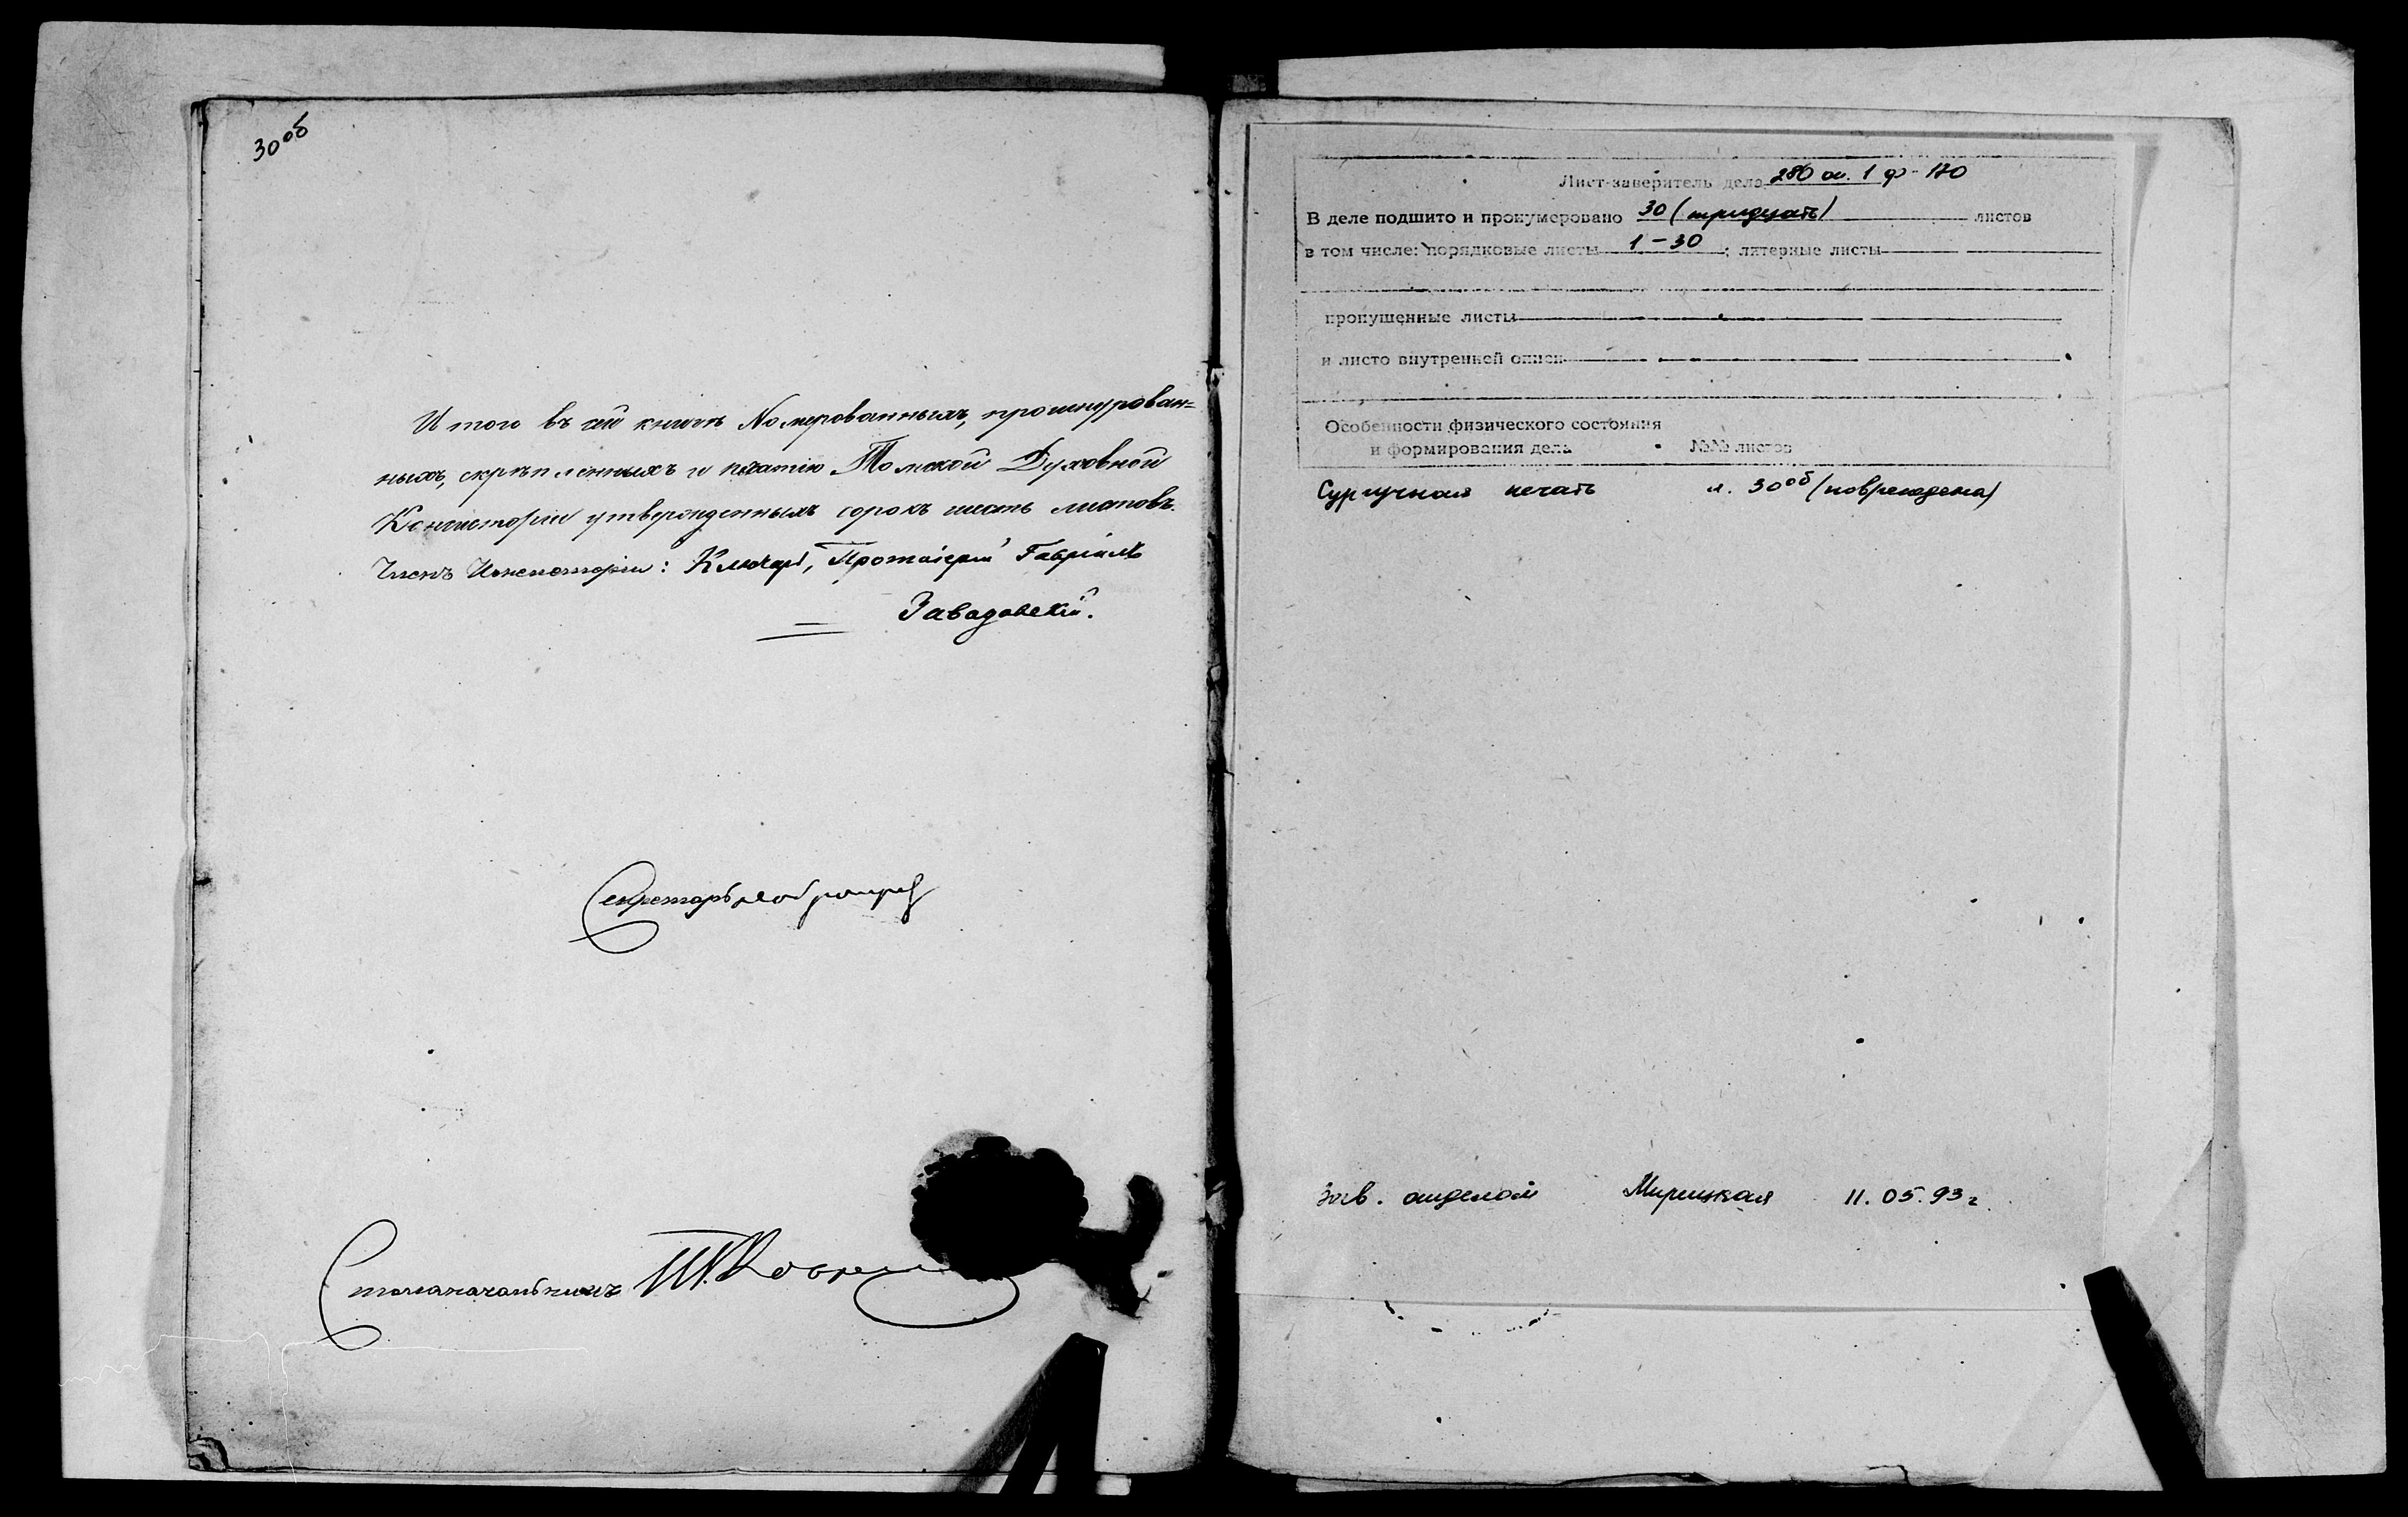 30 об
Итого въ сей книгѣ Номерованныхъ, прошнурован=
ныхъ, скрѣпленныхъ и печатію Томской Духовной
Консисторіи утвержденныхъ сорокъ шесть листовъ.
Членъ Консисторіи: Ключарь, Протоіерей Гавріилъ
Завадовскій.
Секретарь
Столоначальникъ
Лист-заверитель дела 280 оп. 1 ф-170
В деле подшито и пронумеровано 30 (тридцать) листов
в том числе: порядковые листы 1-30; литерные листы
пропущенные листы
и листо внутренней описи
Особенности физического состояния
и формирования дела №№ листов
Сургучная печать л. 30 об (повреждена)
Зав. отделом Мирицкая 11.05.93 г.